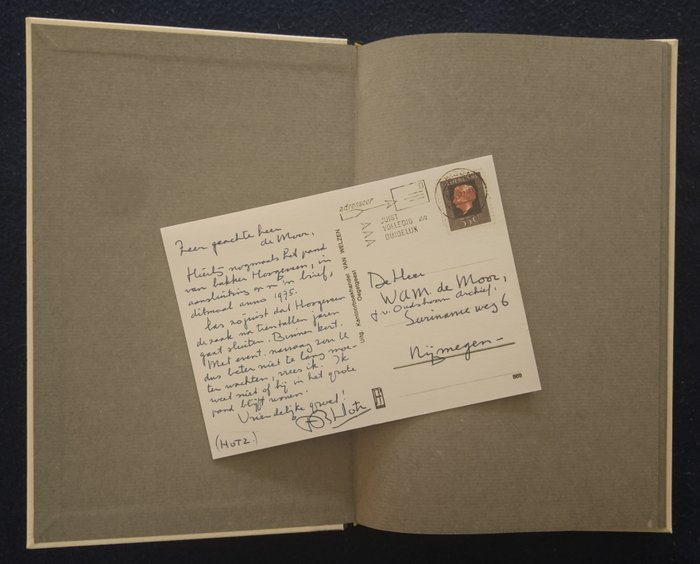 Zeer geachte heer
de Moor,
Hierbij nogmaals het pand
van bakker Hoogeveen, in
aansluiting op m'n brief,
ditmaal anno 1975.
Las zojuist dat Hoogeveen
de zaak na tientallen jaren
gaat sluiten. Binnen kort.
Met event. navraag zou U
dus beter niet te lang moe-
ten wachten, vrees ik. Ik
weet niet of hij in het grote
pand blijft wonen.
Vriendelijke groet!
Hotz
(HOTZ.)
Uitg. Kantoorboekhandel VAN WELZEN
Oegstgeest
adresseer
JUIST
VOLLEDIG en
DUIDELIJK
NEDERLAND
55c
De Heer
W.A.M. de Moor,
J. v. Oudshoorn archief,
Surinameweg 6
Nijmegen